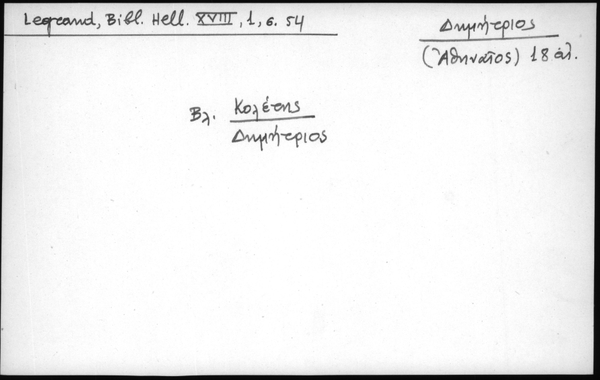 Legrand, Bibl. Hell. XVIII, 1, σ. 54
Δημήτριος
(Ἀθηναῖος) 18 αἰ.
Βλ. Κολέτης
Δημήτριος